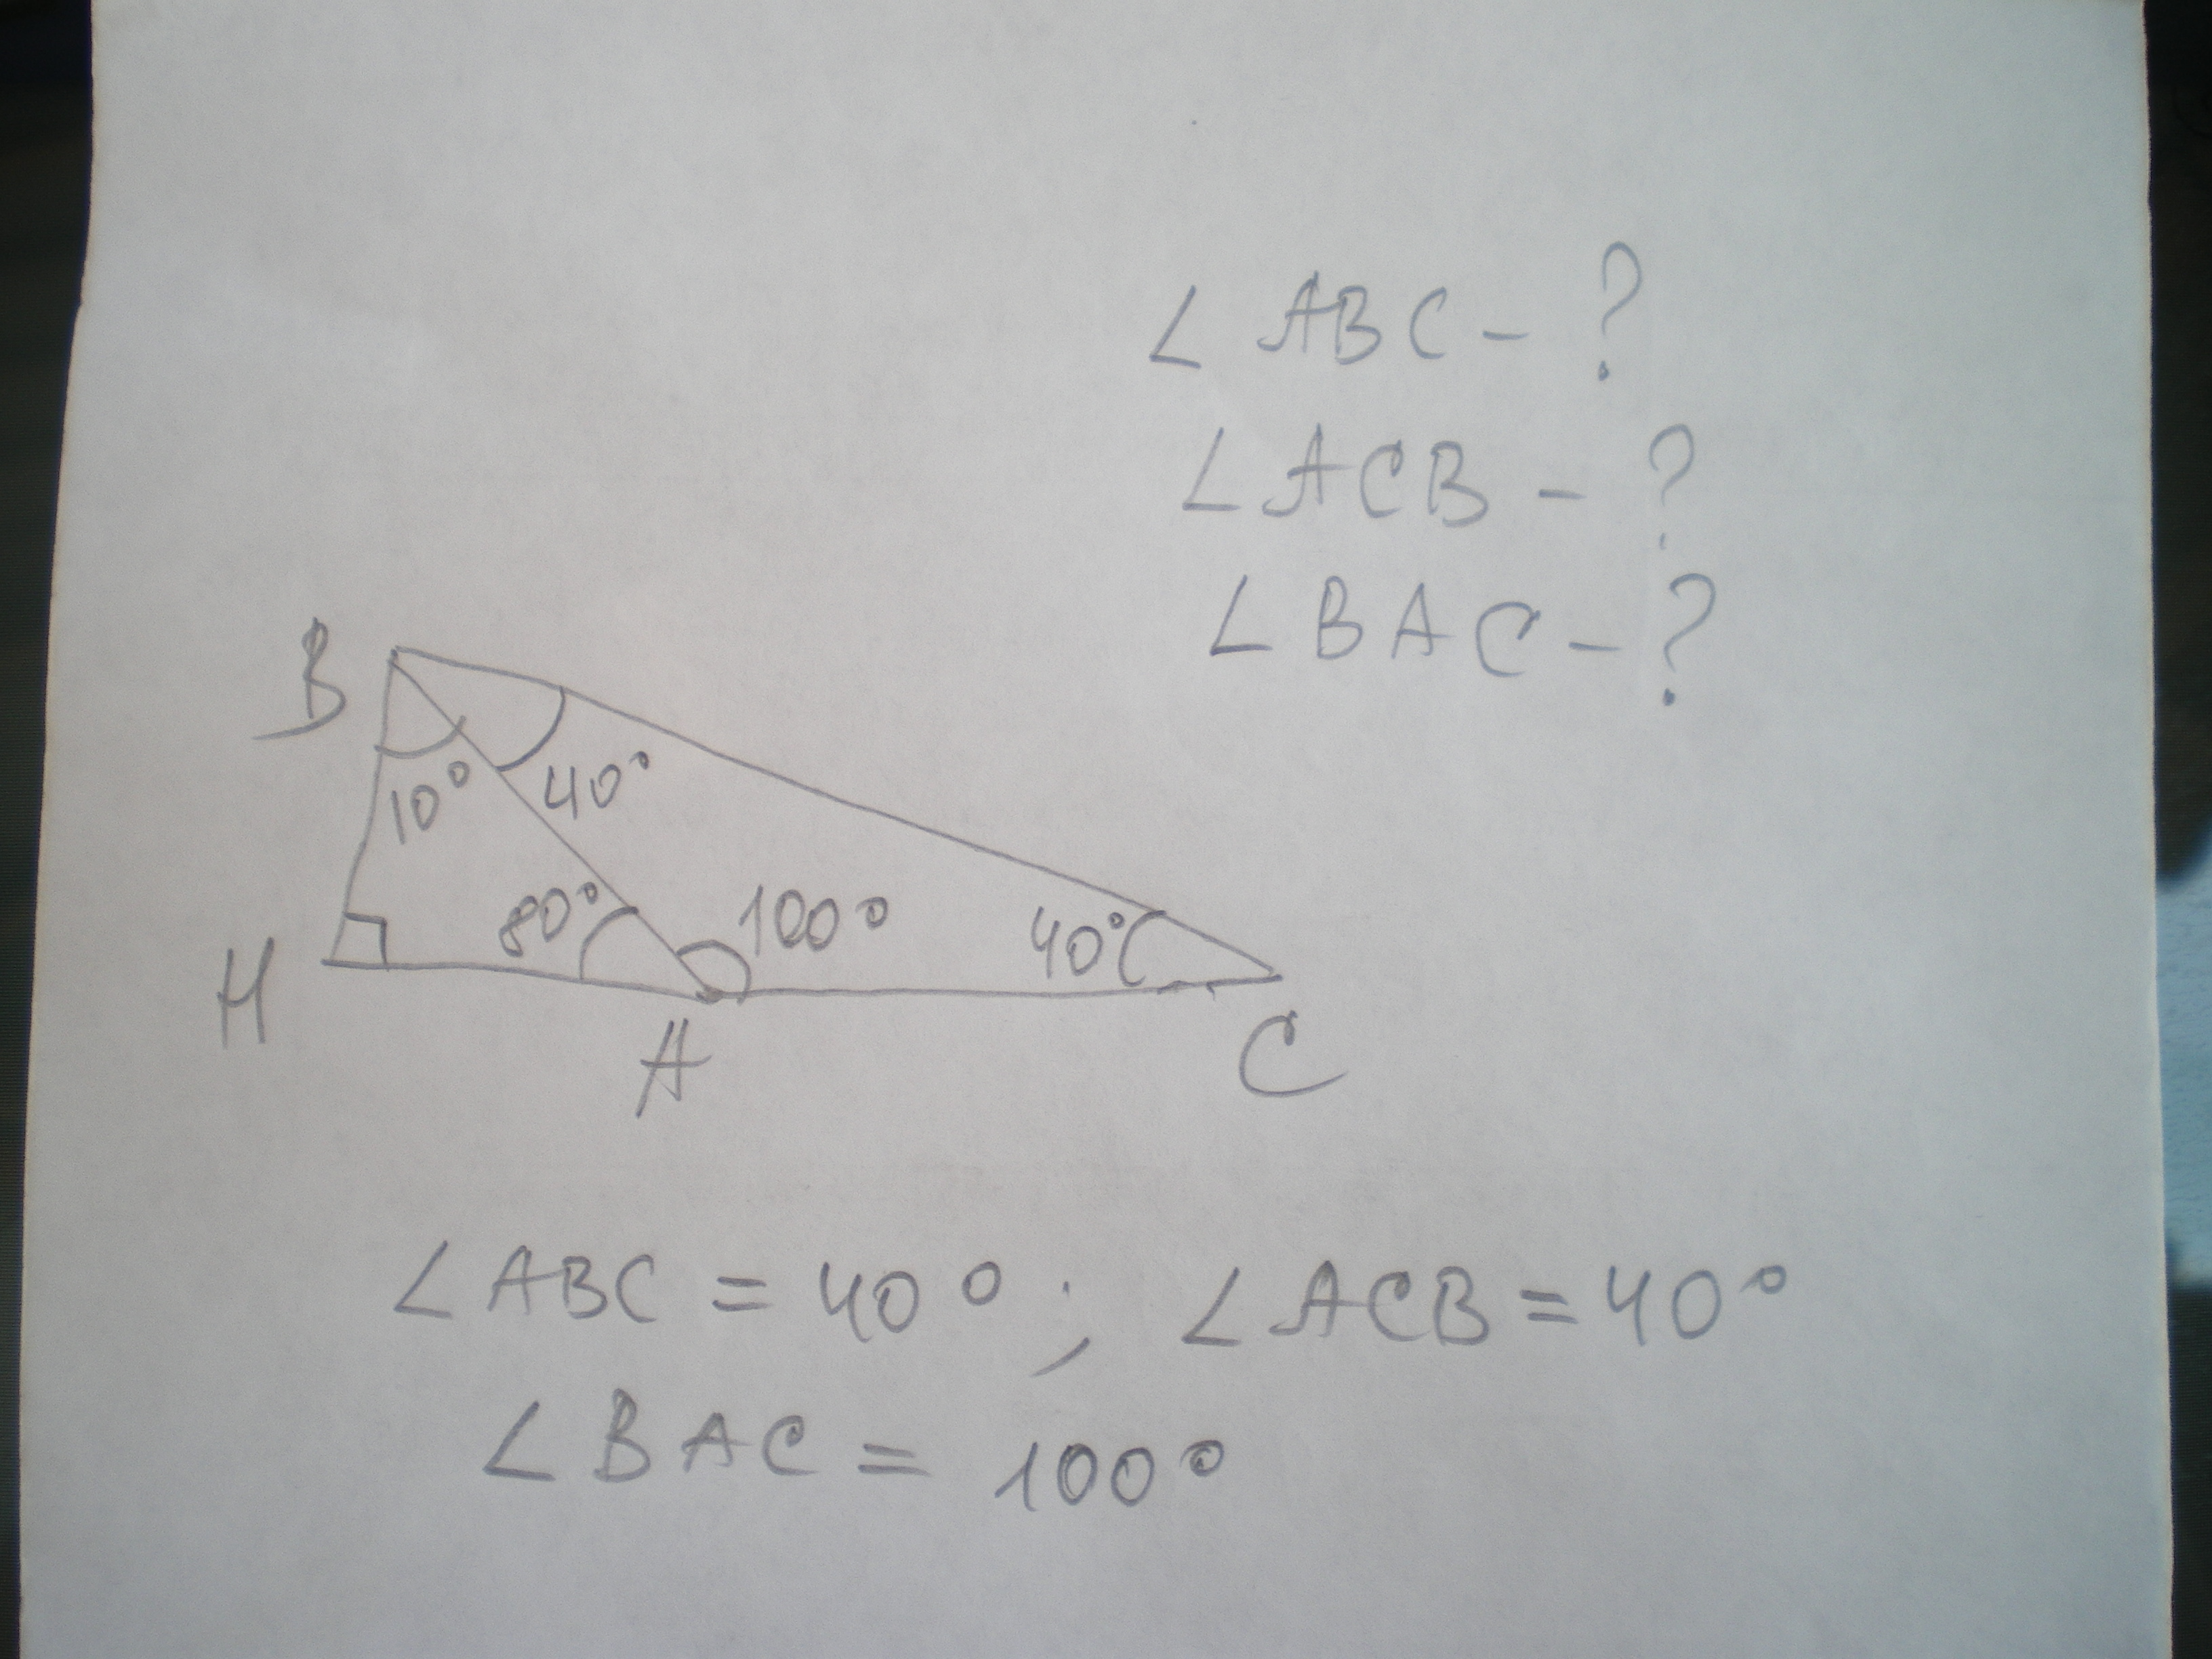 ∠ABC - ?
∠ACB - ?
∠BAC - ?
B
10°
40°
80°
100°
40°
H
A
C
∠ABC = 40°; ∠ACB = 40°
∠BAC = 100°